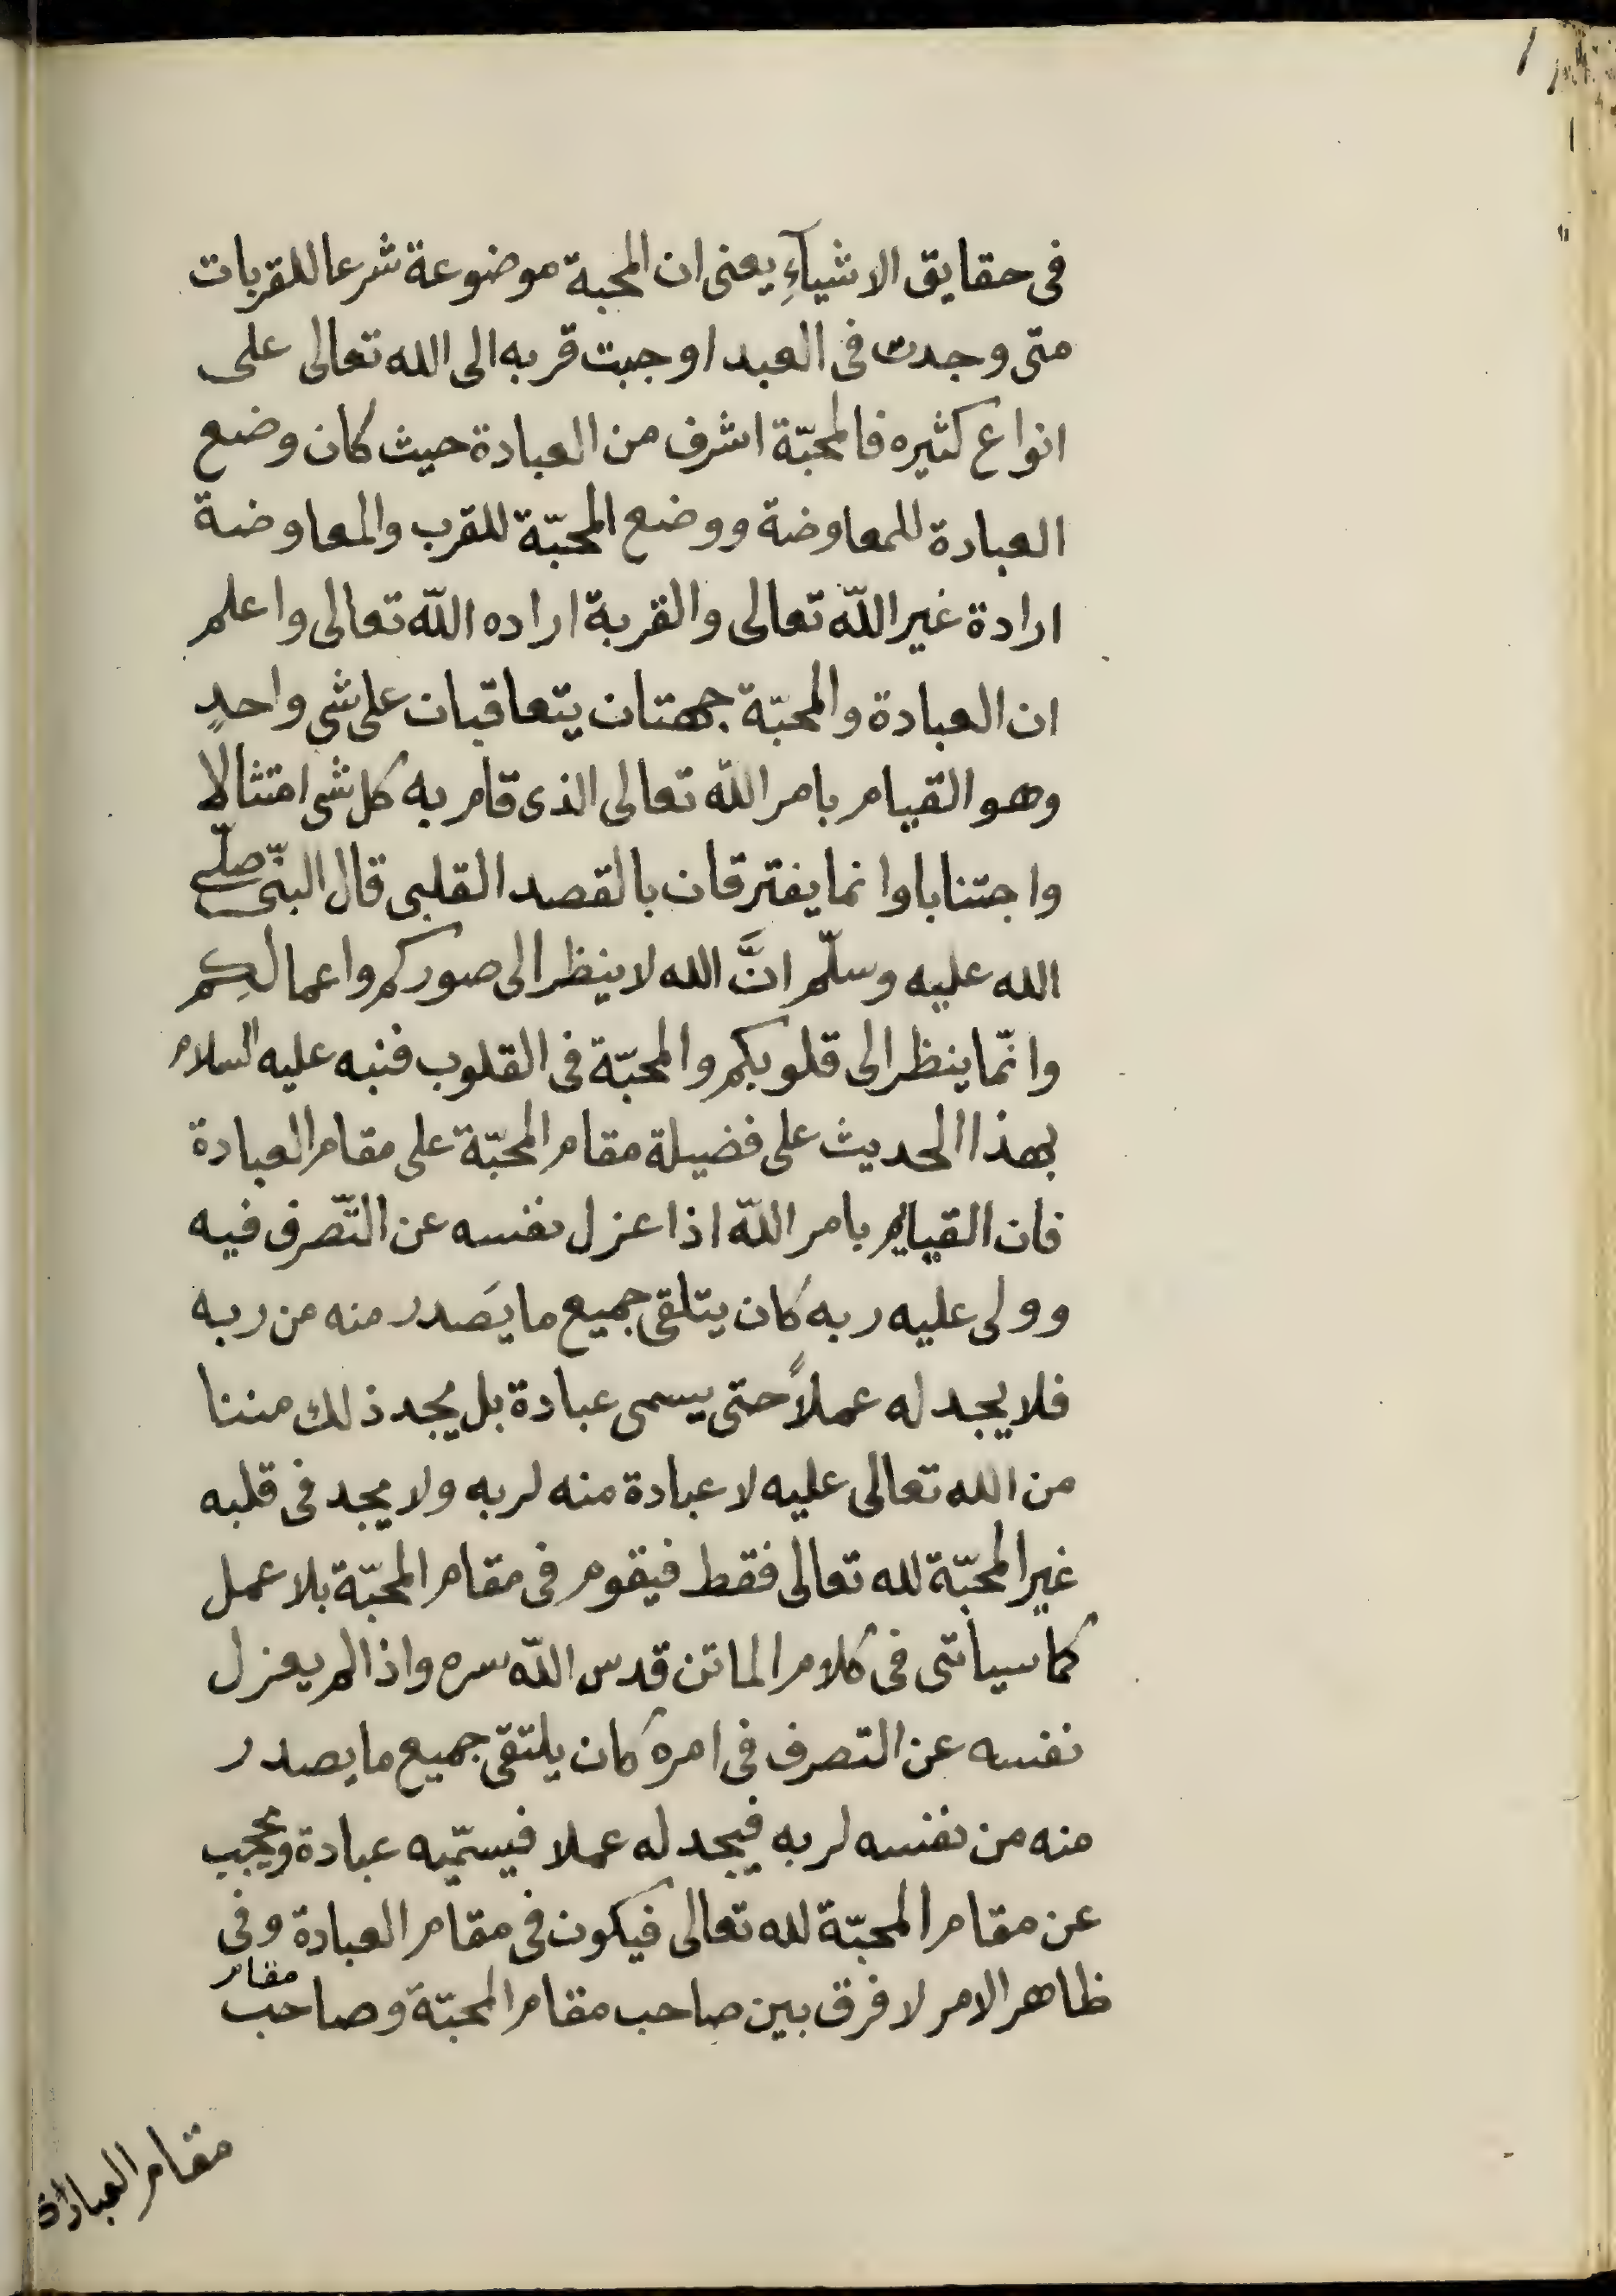 فى حقايق الاشيآءِ يعنى ان المحبة موضوعة شرعا للقربات
متى وجدت فى العبد اوجبت قربه الى الله تعالى على
انواع كثيره فالمحبّة اشرف من العبادة حيث كان وضع
العبادة للمعاوضة ووضع المحبّة للقرب والمعاوضة
ارادة غير اللّه تعالى والقربة اراده اللّه تعالى واعلم
ان العبادة والمحبّة جهتان يتعاقبان على شى واحدٍ
وهو القيام بامر اللّه تعالى الذى قام به كل شى امتثالا
واجتنابا وانما يفترقان بالقصد القلبى قال النبّى صلّى
الله عليه وسلّم انَّ الله لا ينظر الى صوركم واعمالكِم
وانّما ينظر الى قلوبكم والمحبّة فى القلوب فنبه عليه السلام
بهذا الحديث على فضيلة مقام المحبّة على مقام العبادة
فان القيام بامر اللّه اذا عزل نفسه عن التّصرف فيه
وولى عليه ربه كان يتلقى جميع ما يَصدر منه من ربه
فلا يجد له عملاً حتى يسمى عبادة بل يجد ذلك مننا
من الله تعالى عليه لا عبادة منه لربه ولا يجد فى قلبه
غير المحبّة لله تعالى فقط فيقوم فى مقام المحبّة بلا عمل
كما سياتى فى كلام الماتن قدس اللّه سره واذا لم يعزل
نفسه عن التصرف فى امره كان يلتقى جميع ما يصدر
منه من نفسه لربه فيجد له عملا فيسمّيه عبادة ويحجب
عن مقام المحبّة لله تعالى فيكون فى مقام العبادة وفى
ظاهر الامر لا فرق بين صاحب مقام المحبّة وصاحب مقام
مقام العبادة